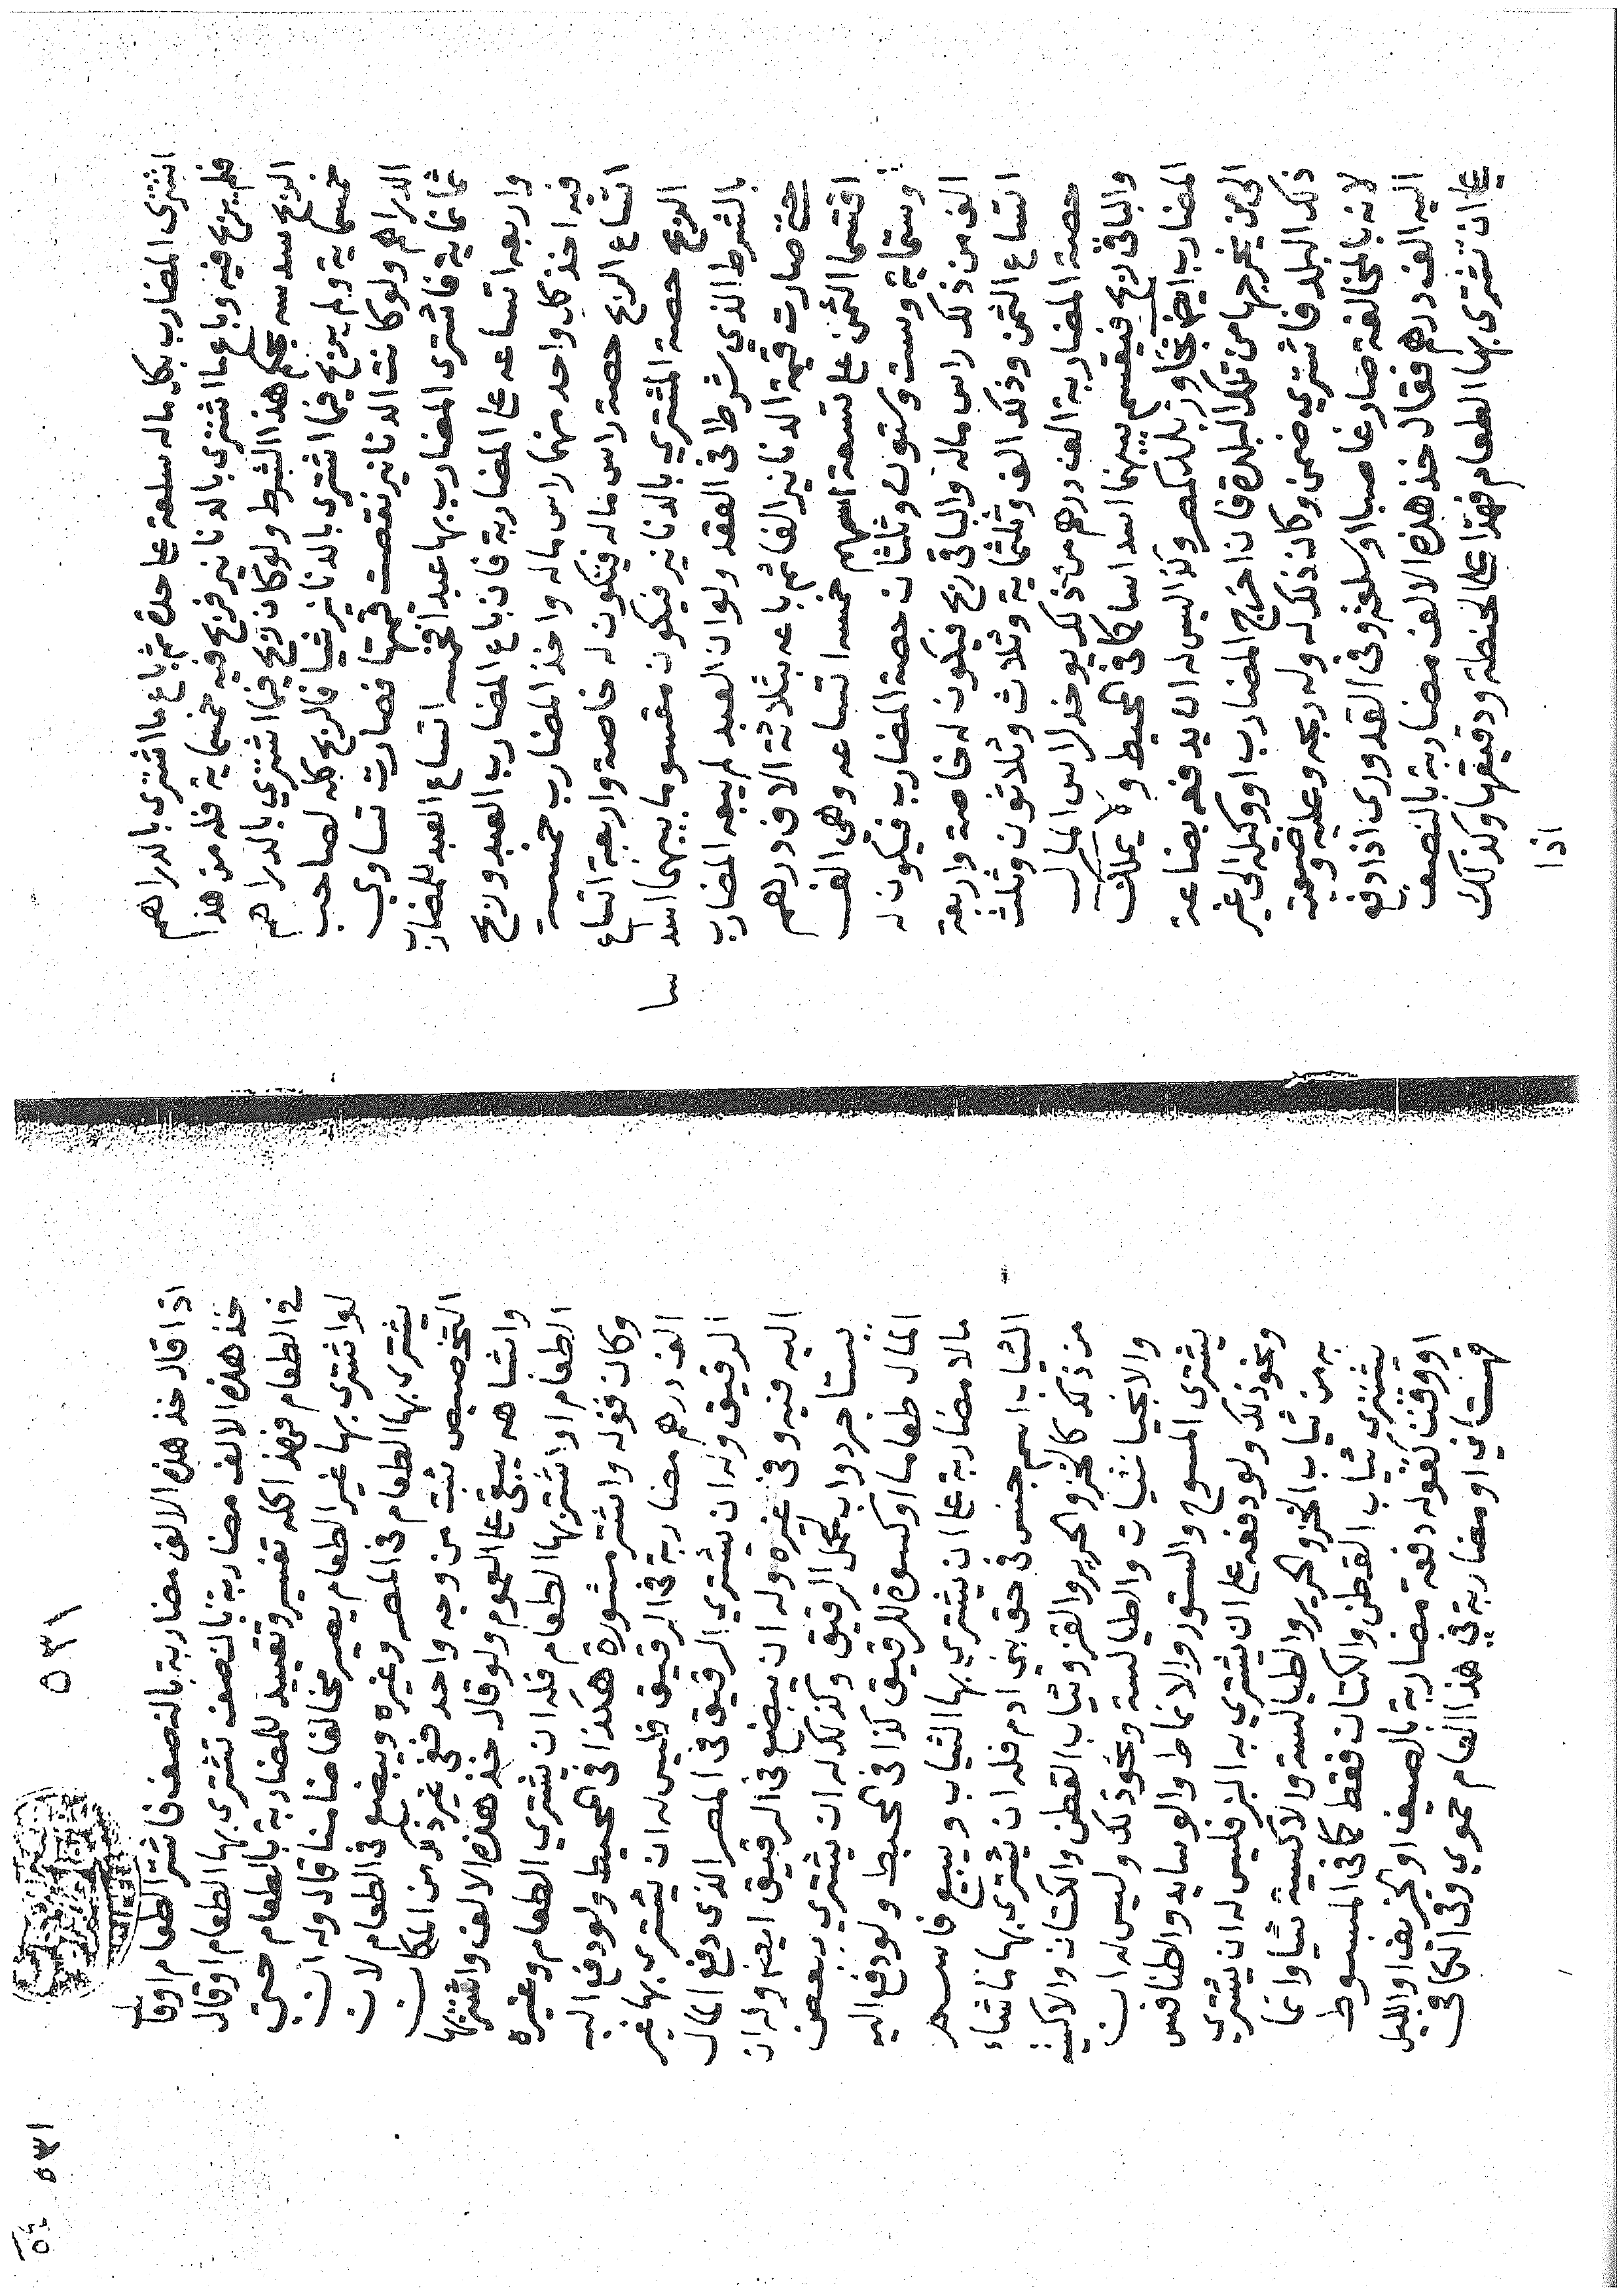 اشترى المضارب بكل ماله سلعة على حدة ثم باع ما اشترى بالدراهم
فلم يربح فيه وباع ما اشترى بالدنانير فربح فيه خمسماية فله من هذا
الربح سدسه بحكم هذا الشرط ولو كان ربح فيما اشترى بالدراهم
خمسماية ولم يربح فيما اشترى بالدنانير شيا فالربح كله لصاحب
الدراهم ولو كانت الدنانير نقصت قيمتها فصارت تساوي
ثمانماية فاشترى المضارب بها عبدا فخمسه اتساع العبد للمضارب
واربعه اتساعه على المضاربة فان باع المضارب العبد وربح
فيه اخذ كل واحد منهما راس ماله واخذ المضارب خمسة
اتساع الربح حصة راس ماله فيكون له خاصة واربعة اتساع
الربح حصة المشتري بالدنانير فيكون مقسوما بينهما اسدا
سا
بالشرط الذي شرطا فى العقد ولو ان العبد لم يبعه المضارب
حتى صارت قيمة الدنانير الفا ثم باعه بثلاثة الاف درهم
اقتسما الثمن على تسعة اسهم خمسه اتساعه وهى الف
وستماية وست وستون وثلثان حصة المضارب فيكون له
الف من ذلك راس ماله والباقى ربح فيكون له خاصة واربعة
اتساع الثمن وذلك الف وثلثماية وثلاث وثلاثون وثلث
حصة المضاربة الف درهم من ذلك يوخذ لراس المال
والباقى ربح فيقسم بينهما اسداسا كما فى المحيط ولا يملك
المضارب ايض تجاوز بلد كمصر وكذا ليس له ان يدفعه بضاعة
الى من يخرجها من تلك البلدة فان اخرج المضارب او وكيله الى غير
ذلك البلد فاشترى ضمن وكان ذلك له وله ربحه وعليه وضيعته
لانه بالمخالفة صار غاصبا او سلعة وفى القدورى اذا دفع
اليه الف درهم فقال خذ هذه الالف مضاربة بالنصف
على ان تشترى بها الطعام فهذا على الحنطة ودقيقها وكذلك
اذا
٥٣١
اذا قال خذ هذه الالف مضاربة بالنصف فاشتر الطعام او قال
خذ هذه الالف مضاربة بالنصف تشترى بها الطعام او قال
فى الطعام فهذا كله تفسير وتقييد للمضاربة بالطعام حتى
لو اشترى بها غير الطعام يصير مخالفا ضامنا قال وله ان
يشترى بها الطعام فى المصر وغيره ويبضع فى الطعام لان
التخصيص ثبت من وجه واحد ففى غير ذلك من المكان
وانشاهه يبقى على العموم ولو قال خذ هذه الالف واشتر بها
الطعام او اشتر بها الطعام فله ان يشتري الطعام وغيره
وكان قوله واشتر مشورة هكذا فى المحيط ولو دفع اليه
الف درهم مضاربة فى الرقيق فليس له ان يشترى بها غير
الرقيق وله ان يشتري الرقيق فى المصر الذى دفع المال
اليه فيه وفى غيره وله ان يبضع فى الرقيق ايض وله ان
يستاجر دواب لحمل الرقيق وكذلك له ان يشتري ببعض
المال طعاما او كسوة للرقيق كذا فى المحيط ولو دفع اليه
مالا مضاربة على ان يشتري بها الثياب ويبيع فاسم
الثياب اسم جنس فى حق بني ادم فله ان يشترى بها ما شاء
من ذلك كالخز والحرير والقز وثياب القطن والكتان والاكسية
والانبجانيات والطيالسة ونحو ذلك وليس له ان
يشترى المسوح والستور والانماط والوسايد والطنافس
ونحو ذلك ولو دفعه على ان يشتري به البز فليس له ان يشتري
به من ثياب الخز والحرير والطيالسة والاكسية شيا وانما
يشتري ثياب القطن والكتان فقط كما فى المبسوط
او وقت كقوله دفعته مضاربة بالصيف او الخريف او الليل
قهستاني او مضاربة في هذا العام حموي وفى الكافى
٥٣١